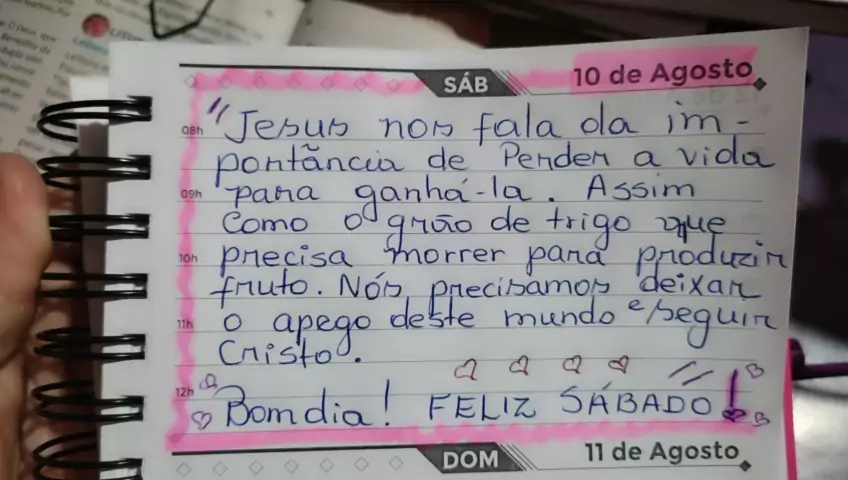 SÁB 10 de Agosto
08h "Jesus nos fala da im-
portância de Perder a vida
09h para ganhá-la. Assim
Como o grão de trigo que
10h precisa morrer para produzir
fruto. Nós precisamos deixar
11h o apego deste mundo e/seguir
Cristo.
12h Bom dia! FELIZ SÁBADO!
DOM 11 de Agosto